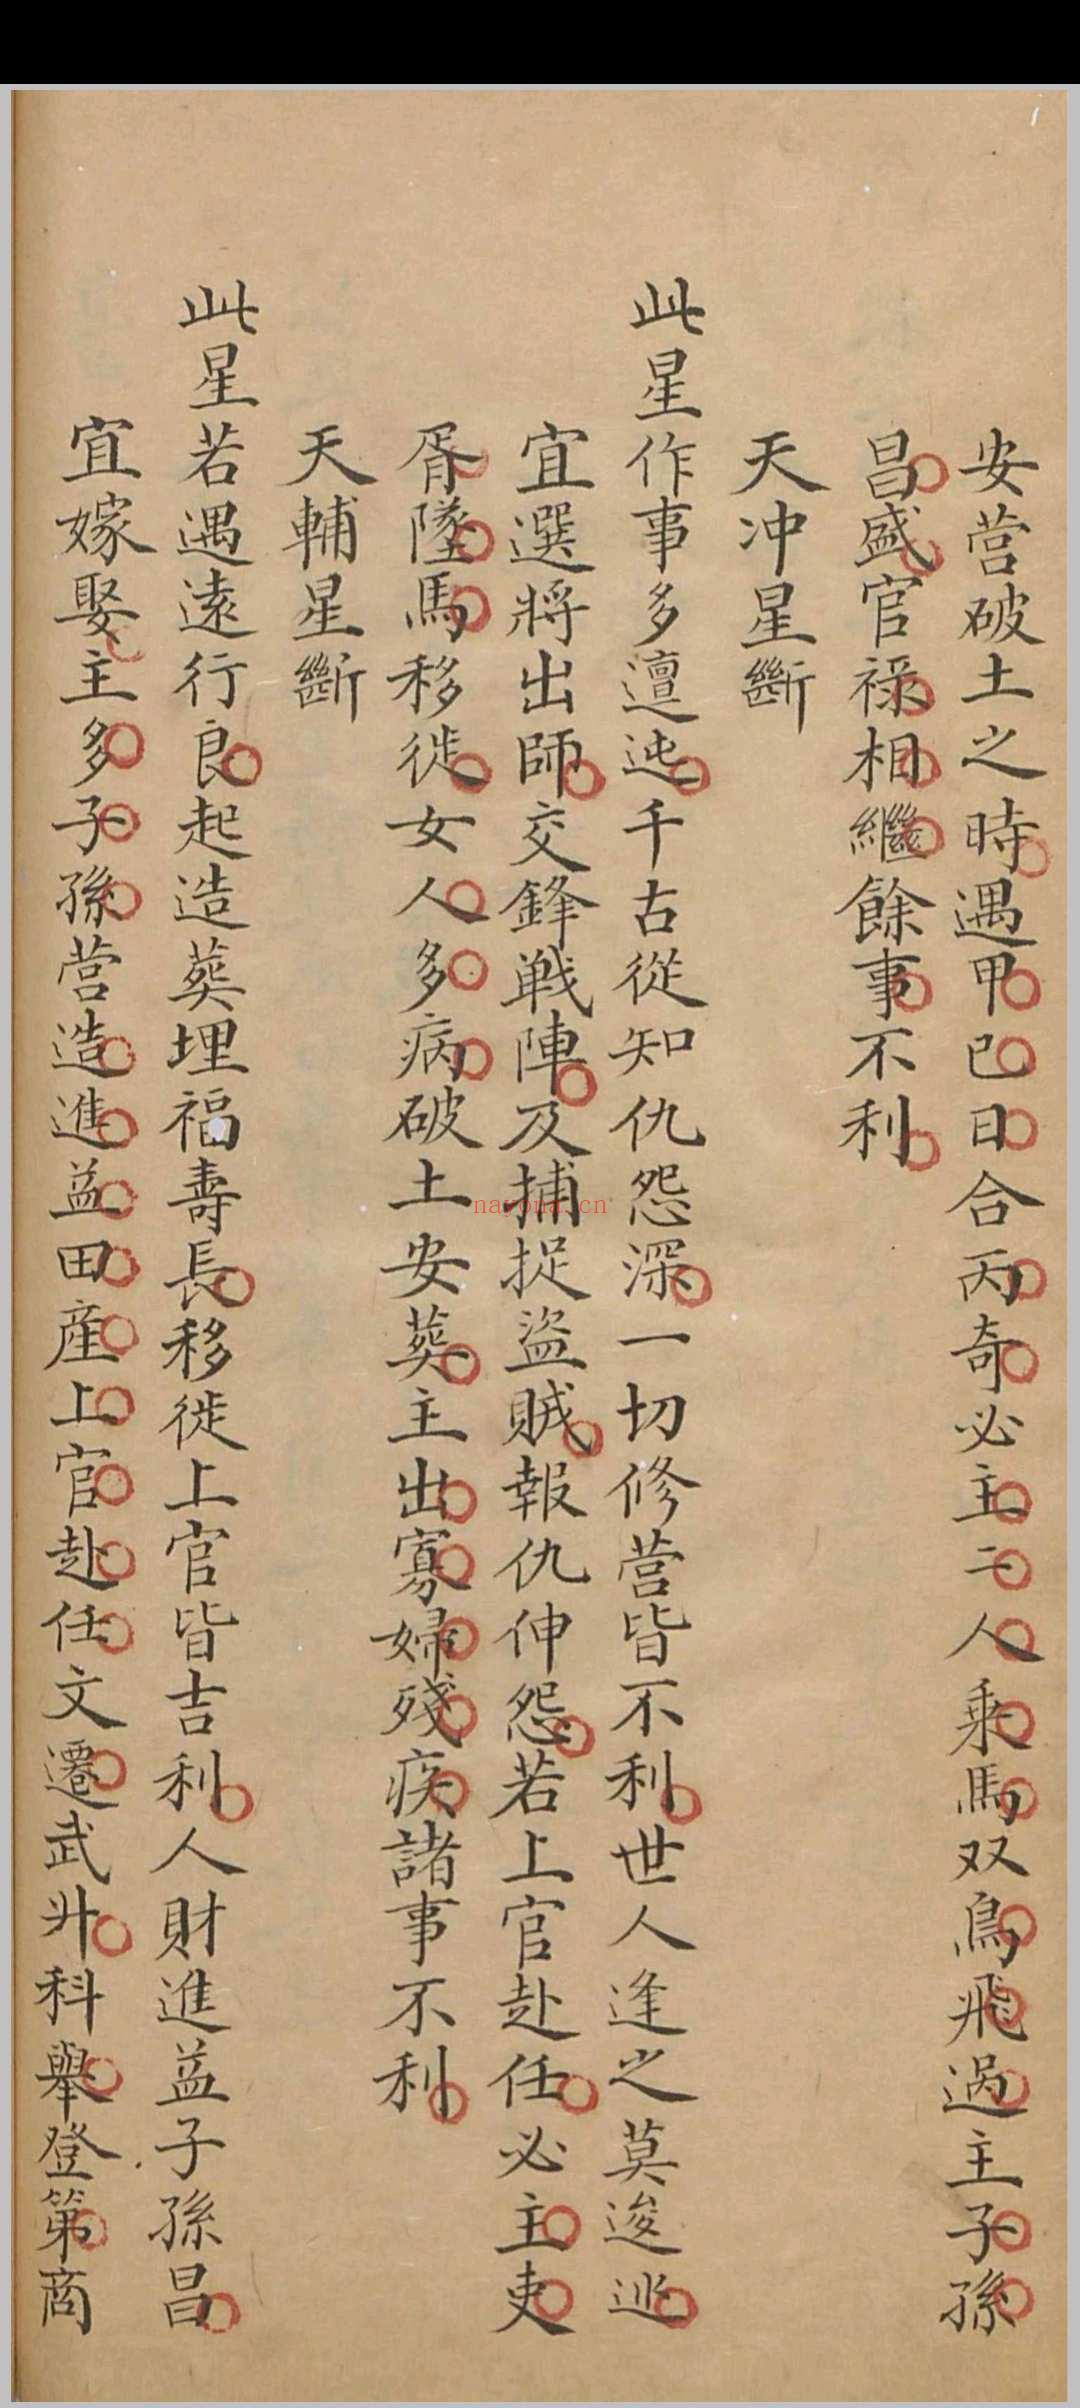 安营破土之時遇甲己日合丙奇必主二人乘馬双鳥飛過主子孫
昌盛官禄相繼餘事不利
天冲星斷
此星作事多邅迍千古從知仇怨深一切修营皆不利世人逢之莫逡巡
宜選將出師交鋒戦陣及捕捉盜賊報仇伸怨若上官赴任必主吏
胥墜馬移徙女人多病破土安葬主出寡婦殘疾諸事不利
天輔星斷
此星若遇遠行良起造葬埋福壽長移徙上官皆吉利人財進益子孫昌
宜嫁娶主多子孫营造進益田産上官赴任文遷武升科舉登第商
nayona.cn